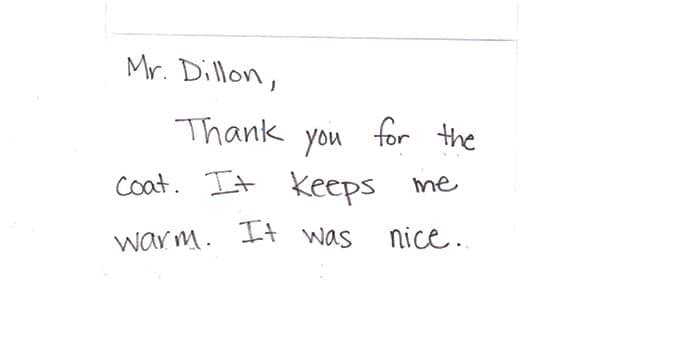 Mr. Dillon,
Thank you for the
coat. It keeps me
warm. It was nice.